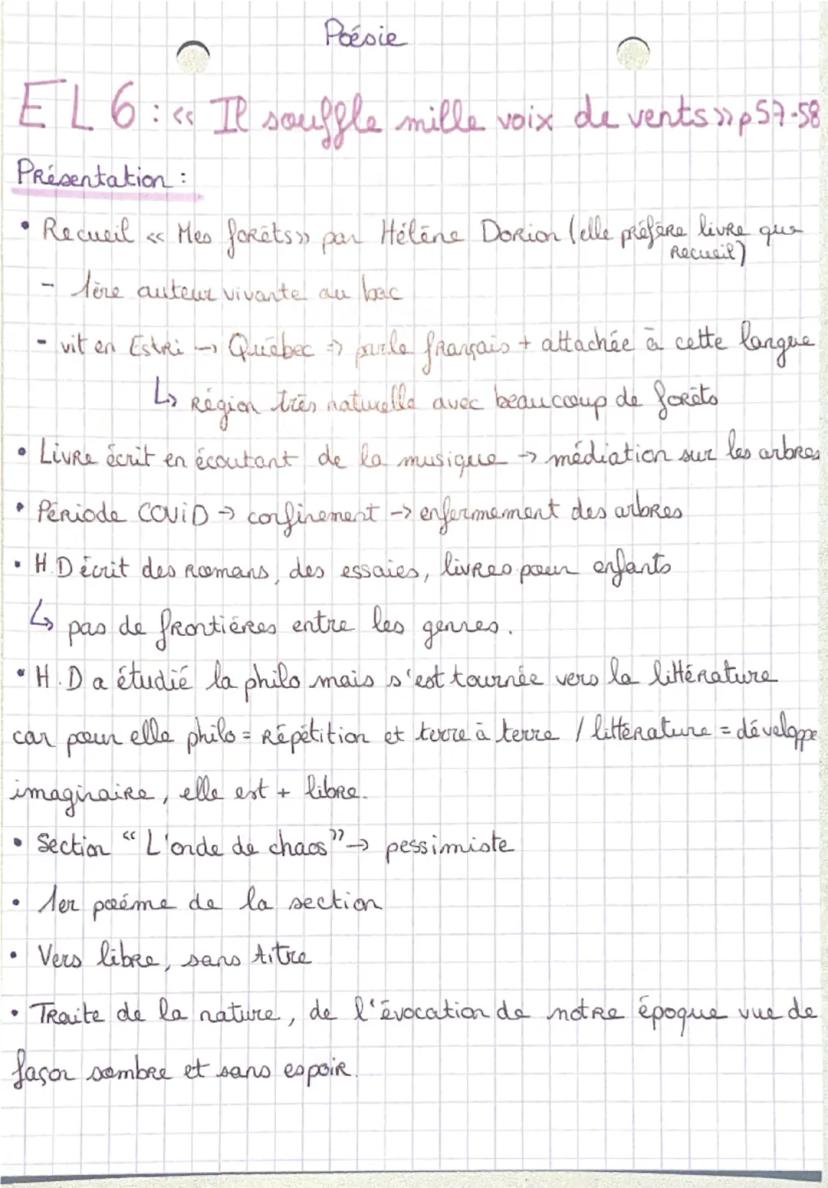 Poésie
EL 6 : « Il souffle mille voix de vents » p 57-58
Présentation :
• Recueil « Mes forêts » par Hélène Dorion (elle préfère livre que
Recueil)
- 1ère auteur vivante au bac
- vit en Estri → Québec => parle français + attachée à cette langue
↳ Région très naturelle avec beaucoup de forêts
• Livre écrit en écoutant de la musique → médiation sur les arbres
• Période COVID → confinement → enfermement des arbres
• H.D écrit des romans, des essaies, livres pour enfants
↳ pas de frontières entre les genres.
• H.D a étudié la philo mais s'est tournée vers la littérature
car pour elle philo = Répétition et terre à terre / littérature = développe
imaginaire, elle est + libre.
• Section “ L'onde de chaos ” → pessimiste
• 1er poème de la section
• Vers libre, sans titre
• Traite de la nature, de l'évocation de notre époque vue de
façon sombre et sans espoir.